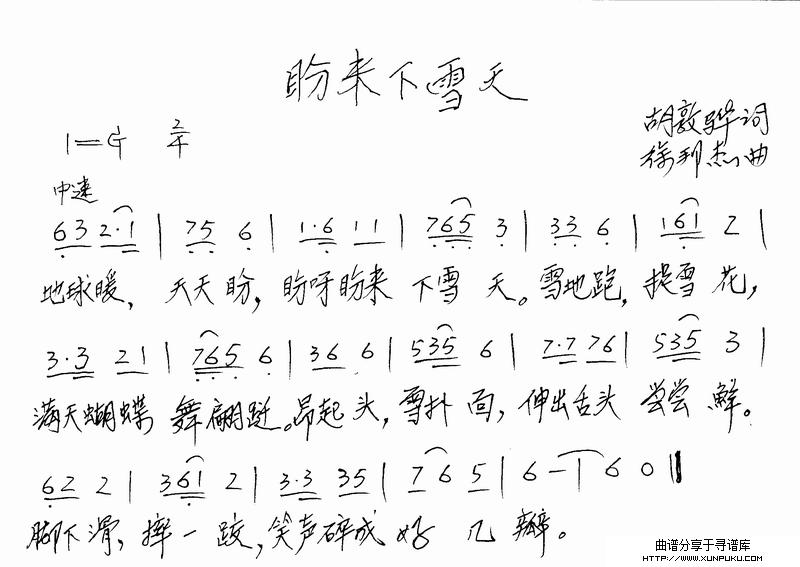 盼来下雪天
1=G 2/4
胡敦骅词
徐邦杰曲
中速
63 2·1 | 75 6 | 1·6 11 | 765 3 | 33 6 | 161 2 |
地球暖，天天盼，盼呀盼来 下雪 天。雪地跑，捉雪 花，
3·3 21 | 765 6 | 36 6 | 535 6 | 7·7 76 | 535 3 |
满天蝴蝶 舞翩跹。昂起 头，雪扑 面，伸出舌头 尝尝 鲜。
62 2 | 361 2 | 3·3 35 | 7 6 5 | 6 - | 6 0 ‖
脚下滑，摔一 跤，笑声碎成 好 几 瓣。
曲谱分享于寻谱库
HTTP://WWW.XUNPUKU.COM